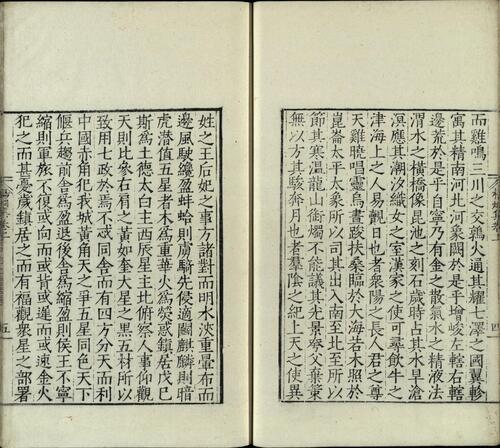 而雞鳴三川之交鶉火通其耀七澤之國翼軫
寓其精南河北河象闕於是乎增峻左轄右轄
邊荒於是乎自寧乃有金之散氣水之精液法
渭水之橫橋像昆池之刻石歲時占其水旱滄
溟應其潮汐織女之室漢家之使可尋飲牛之
津海上之人易覿日也者衆陽之長人君之尊
天雞曉唱靈烏晝踆扶桑臨於大海若木照於
崑崙太平太象所以司其出入南至北至所以
節其寒溫龍山銜燭不能議其光景夸父棄策
無以方其駿奔月也者羣陰之紀上天之使異
四
姓之王后妃之事方諸對而明水浹重暈布而
邊風駛纔盈蚌蛤則虜騎先侵適闕麒麟則暗
虎潛值五星者木為重華火為熒惑鎮居戊己
斯為土德太白主西辰星主北俯察人事仰觀
天則比參右肩之黃如奎大星之黑五材所以
致用七政於焉不忒同舍而有四方分天而利
中國赤角犯我城黃角天之爭五星同色天下
偃兵趨前舍為盈退後舍為縮盈則侯王不寧
縮則軍旅不復或向而或背或遲而或速金火
犯之而甚憂歲鎮居之而有福觀衆星之部署
五